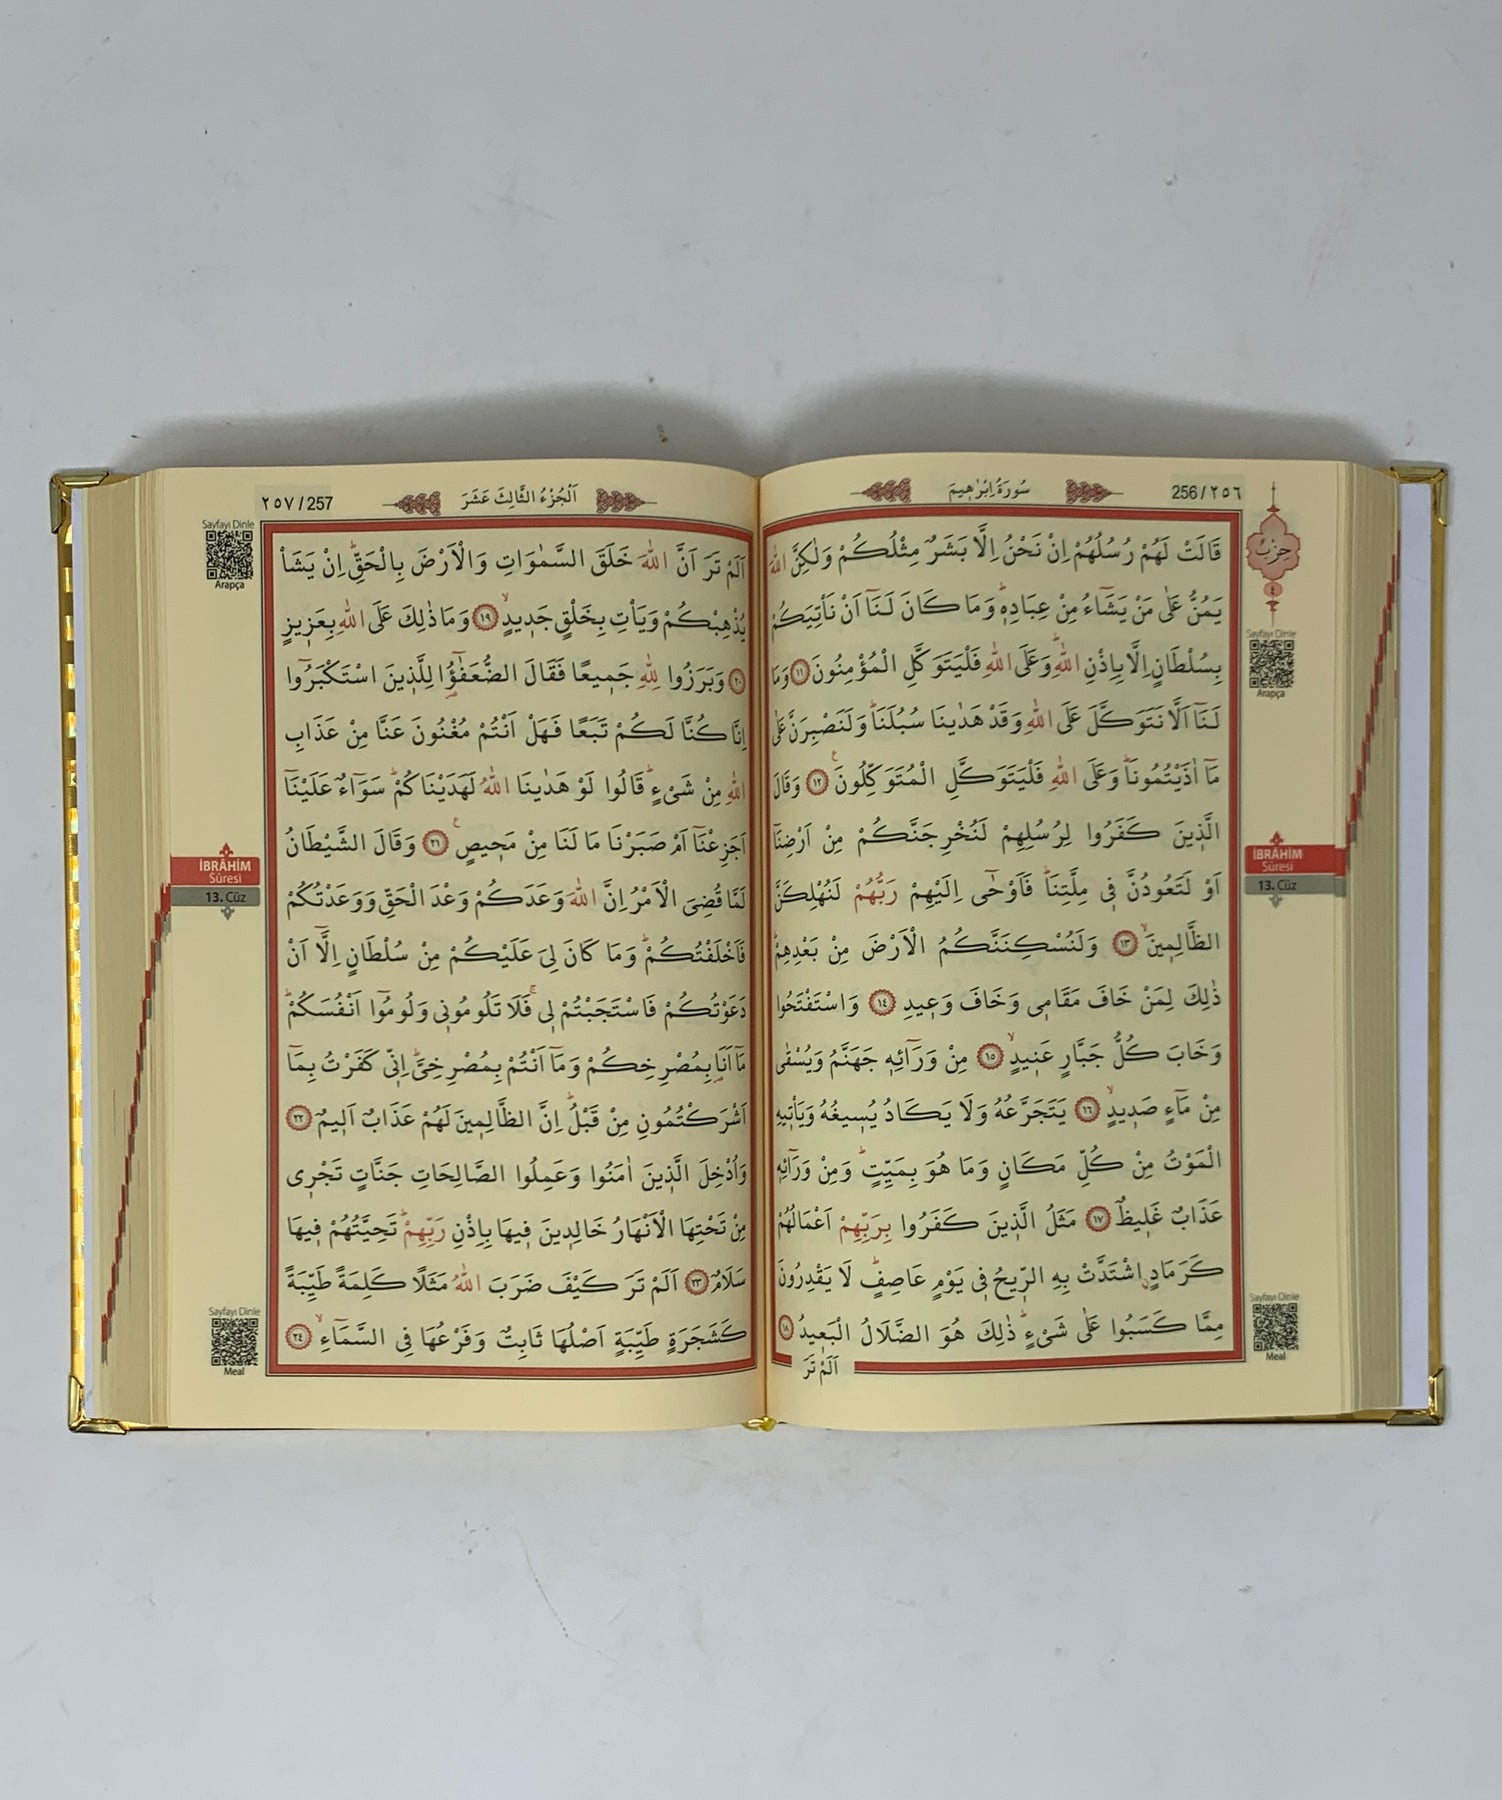 256/٢٥٦
سُورَةُ اِبْرٰهِيمَ
حِزْبْ
٤
قَالَتْ لَهُمْ رُسُلُهُمْ اِنْ نَحْنُ اِلَّا بَشَرٌ مِثْلُكُمْ وَلٰكِنَّ اللّٰهَ
يَمُنُّ عَلٰى مَنْ يَشَٓاءُ مِنْ عِبَادِهٖۜ وَمَا كَانَ لَنَٓا اَنْ نَأْتِيَكُمْ
بِسُلْطَانٍ اِلَّا بِاِذْنِ اللّٰهِۜ وَعَلَى اللّٰهِ فَلْيَتَوَكَّلِ الْمُؤْمِنُونَ ﴿١١﴾ وَمَا
لَنَٓا اَلَّا نَتَوَكَّلَ عَلَى اللّٰهِ وَقَدْ هَدٰينَا سُبُلَنَاۜ وَلَنَصْبِرَنَّ عَلٰى
مَٓا اٰذَيْتُمُونَاۜ وَعَلَى اللّٰهِ فَلْيَتَوَكَّلِ الْمُتَوَكِّلُونَ۟ ﴿١٢﴾ وَقَالَ
الَّذٖينَ كَفَرُوا لِرُسُلِهِمْ لَنُخْرِجَنَّكُمْ مِنْ اَرْضِنَٓا
اَوْ لَتَعُودُنَّ فٖي مِلَّتِنَاۜ فَاَوْحٰٓى اِلَيْهِمْ رَبُّهُمْ لَنُهْلِكَنَّ
الظَّالِمٖينَۙ ﴿١٣﴾ وَلَنُسْكِنَنَّكُمُ الْاَرْضَ مِنْ بَعْدِهِمْۜ
ذٰلِكَ لِمَنْ خَافَ مَقَامٖي وَخَافَ وَعٖيدِ ﴿١٤﴾ وَاسْتَفْتَحُوا
وَخَابَ كُلُّ جَبَّارٍ عَنٖيدٍۙ ﴿١٥﴾ مِنْ وَرَٓائِهٖ جَهَنَّمُ وَيُسْقٰى
مِنْ مَٓاءٍ صَدٖيدٍۙ ﴿١٦﴾ يَتَجَرَّعُهُ وَلَا يَكَادُ يُسٖيغُهُ وَيَأْتٖيهِ
الْمَوْتُ مِنْ كُلِّ مَكَانٍ وَمَا هُوَ بِمَيِّتٍۜ وَمِنْ وَرَٓائِهٖ
عَذَابٌ غَلٖيظٌ ﴿١٧﴾ مَثَلُ الَّذٖينَ كَفَرُوا بِرَبِّهِمْ اَعْمَالُهُمْ
كَرَمَادٍۨ اشْتَدَّتْ بِهِ الرّٖيحُ فٖي يَوْمٍ عَاصِفٍۜ لَا يَقْدِرُونَ
مِمَّا كَسَبُوا عَلٰى شَيْءٍۜ ذٰلِكَ هُوَ الضَّلَالُ الْبَعٖيدُ ﴿١٨﴾
اَلَمْ تَرَ
Sayfayı Dinle
Arapça
İBRÂHİM
Sûresi
13. Cüz
Sayfayı Dinle
Meal
٢٥٧/257
اَلْجُزْءُ الثَّالِثَ عَشَرَ
اَلَمْ تَرَ اَنَّ اللّٰهَ خَلَقَ السَّمٰوَاتِ وَالْاَرْضَ بِالْحَقِّۜ اِنْ يَشَأْ
يُذْهِبْكُمْ وَيَأْتِ بِخَلْقٍ جَدٖيدٍۙ ﴿١٩﴾ وَمَا ذٰلِكَ عَلَى اللّٰهِ بِعَزٖيزٍ
﴿٢٠﴾ وَبَرَزُوا لِلّٰهِ جَمٖيعًا فَقَالَ الضُّعَفٰٓؤُ۬ا لِلَّذٖينَ اسْتَكْبَرُٓوا
اِنَّا كُنَّا لَكُمْ تَبَعًا فَهَلْ اَنْتُمْ مُغْنُونَ عَنَّا مِنْ عَذَابِ
اللّٰهِ مِنْ شَيْءٍۜ قَالُوا لَوْ هَدٰينَا اللّٰهُ لَهَدَيْنَاكُمْۜ سَوَٓاءٌ عَلَيْنَٓا
اَجَزِعْنَٓا اَمْ صَبَرْنَا مَا لَنَا مِنْ مَحٖيصٍ۟ ﴿٢١﴾ وَقَالَ الشَّيْطَانُ
لَمَّا قُضِيَ الْاَمْرُ اِنَّ اللّٰهَ وَعَدَكُمْ وَعْدَ الْحَقِّ وَوَعَدْتُكُمْ
فَاَخْلَفْتُكُمْۜ وَمَا كَانَ لِيَ عَلَيْكُمْ مِنْ سُلْطَانٍ اِلَّٓا اَنْ
دَعَوْتُكُمْ فَاسْتَجَبْتُمْ لٖيۚ فَلَا تَلُومُونٖي وَلُومُٓوا اَنْفُسَكُمْۜ
مَٓا اَنَا۬ بِمُصْرِخِكُمْ وَمَٓا اَنْتُمْ بِمُصْرِخِيَّۜ اِنّٖي كَفَرْتُ بِمَٓا
اَشْرَكْتُمُونِ مِنْ قَبْلُۜ اِنَّ الظَّالِمٖينَ لَهُمْ عَذَابٌ اَلٖيمٌ ﴿٢٢﴾
وَاُدْخِلَ الَّذٖينَ اٰمَنُوا وَعَمِلُوا الصَّالِحَاتِ جَنَّاتٍ تَجْرٖي
مِنْ تَحْتِهَا الْاَنْهَارُ خَالِدٖينَ فٖيهَا بِاِذْنِ رَبِّهِمْۜ تَحِيَّتُهُمْ فٖيهَا
سَلَامٌ ﴿٢٣﴾ اَلَمْ تَرَ كَيْفَ ضَرَبَ اللّٰهُ مَثَلًا كَلِمَةً طَيِّبَةً
كَشَجَرَةٍ طَيِّبَةٍ اَصْلُهَا ثَابِتٌ وَفَرْعُهَا فِي السَّمَٓاءِۙ ﴿٢٤﴾
Sayfayı Dinle
Arapça
İBRÂHİM
Sûresi
13. Cüz
Sayfayı Dinle
Meal